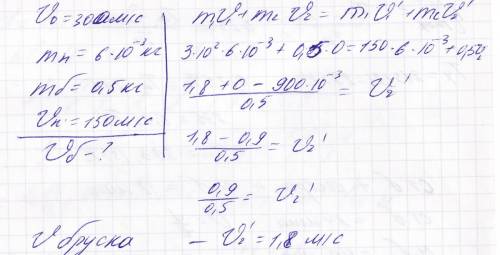 V₀ = 300 м/с
mп = 6·10⁻³ кг
mб = 0,5 кг
Vп = 150 м/с
Vб - ?
m₁V₁ + m₂V₂ = m₁V₁' + m₂V₂'
3·10²·6·10⁻³ + 0,5·0 = 150·6·10⁻³ + 0,5V₂
(1,8 + 0 − 900·10⁻³)/0,5 = V₂'
(1,8 − 0,9)/0,5 = V₂'
0,9/0,5 = V₂'
V бруска − V₂' = 1,8 м/с